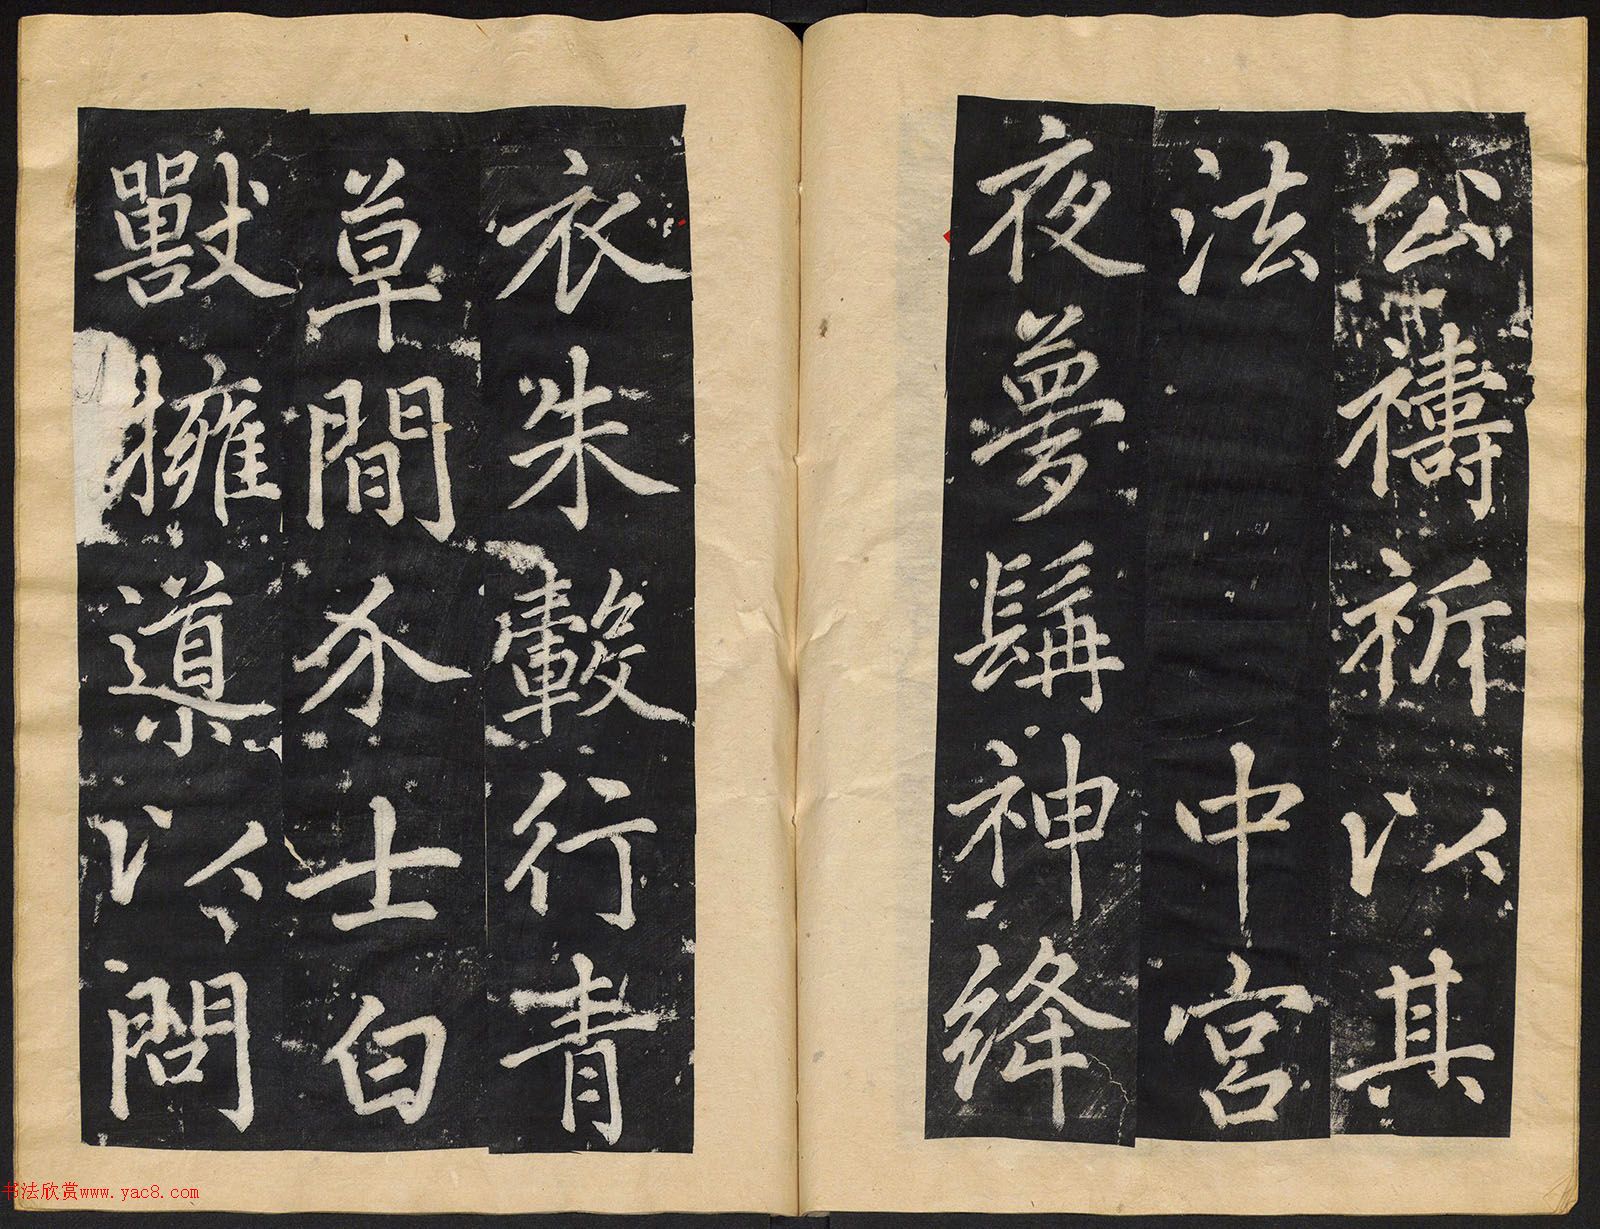 禱祈以其
法中宮
夜夢髯神絳
衣朱轂行青
草間介士白
獸擁導以問
书法欣赏www.yac8.com